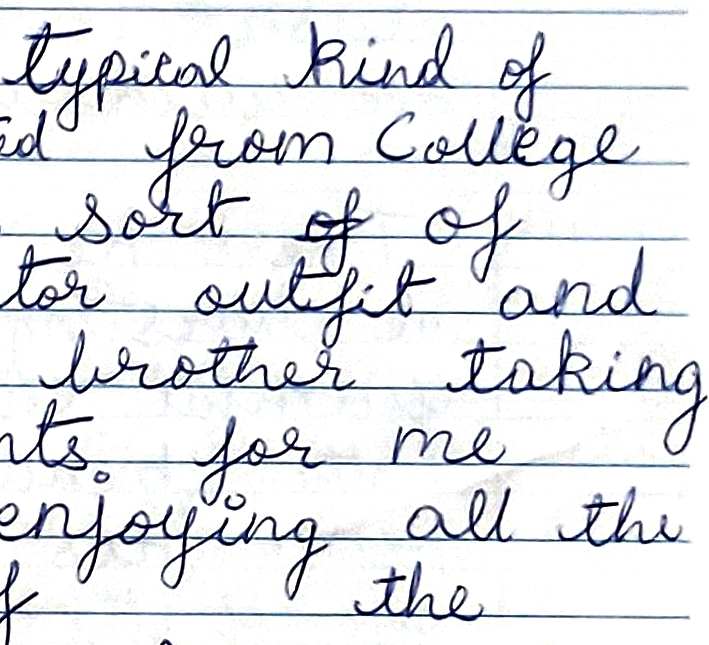 typical kind of
ed from College
sort of of
tor outfit and
brother taking
nts. for me
enjoying all the
f the